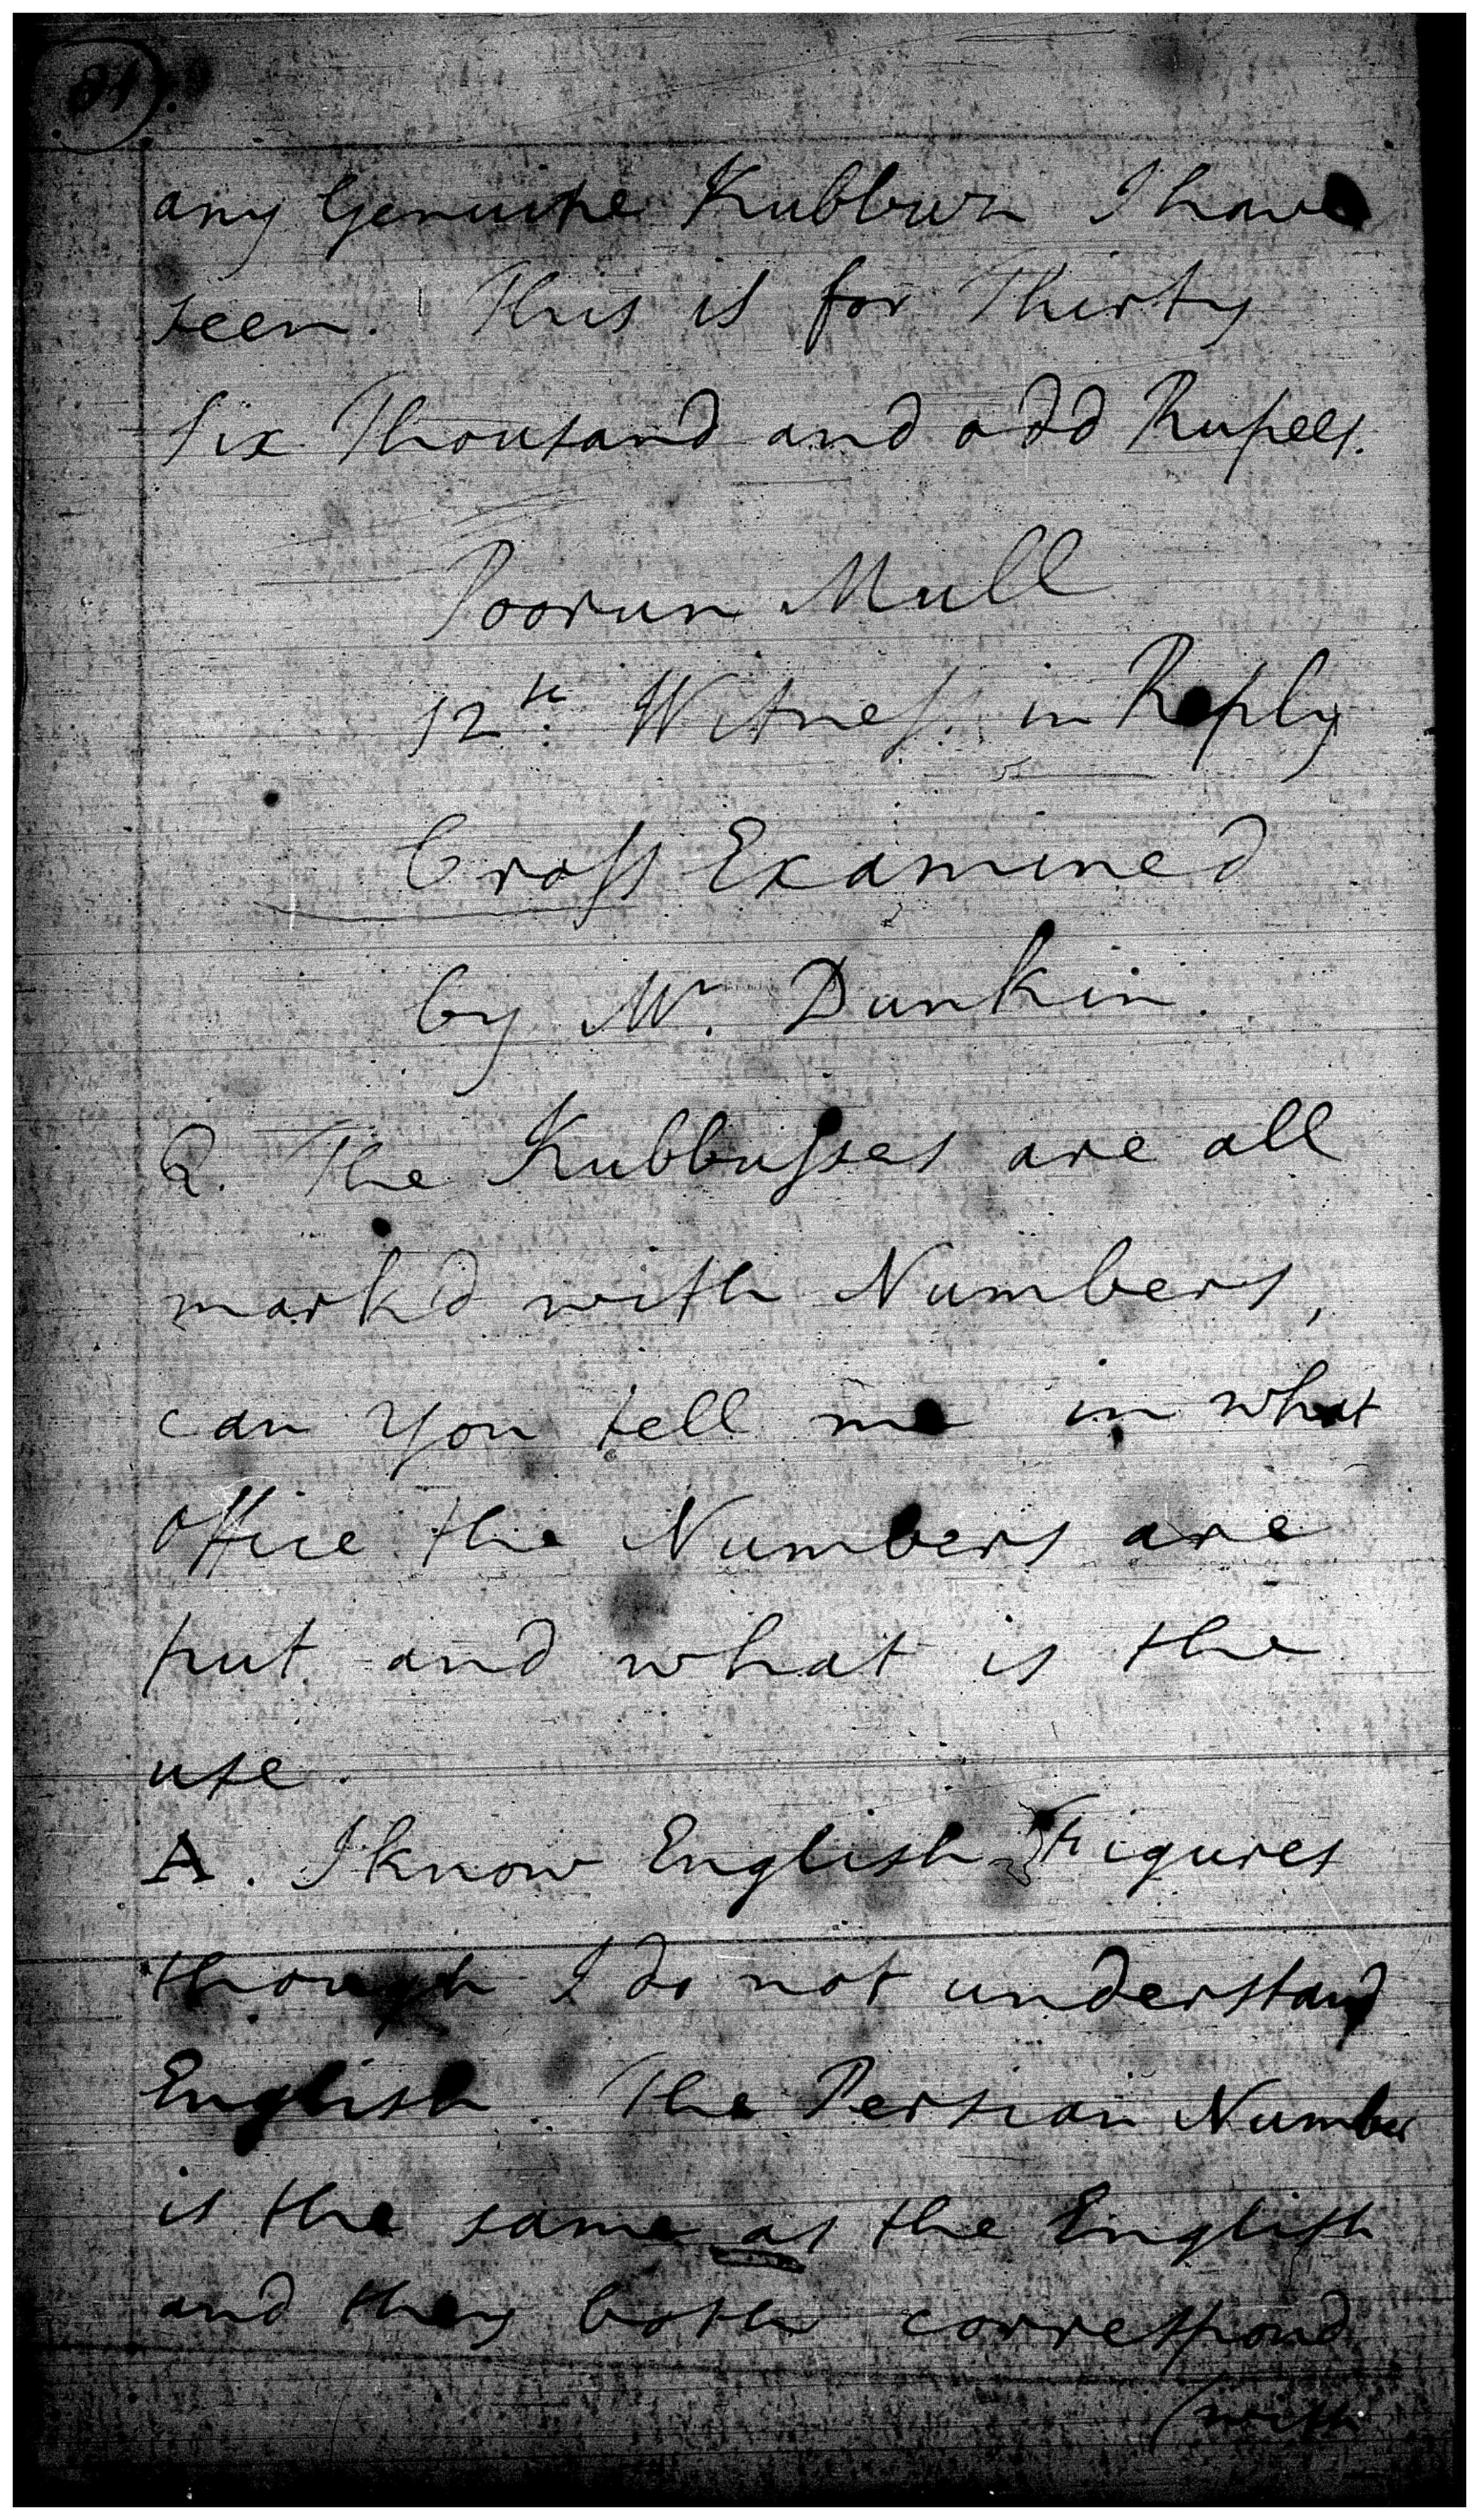 81
any Genuine Kubbuz I have
seen. This is for Thirty
Six Thousand and odd Rupees.
Poorun Mull
12th Witness in Reply
Cross Examined
by Mr. Dunkin.
Q. The Kubbusses are all
mark'd with Numbers,
can you tell me in what
Office the Numbers are
put and what is the
use.
A. I know English Figures
though I do not understand
English. The Persian Number
is the same as the English
and they both correspond
(with